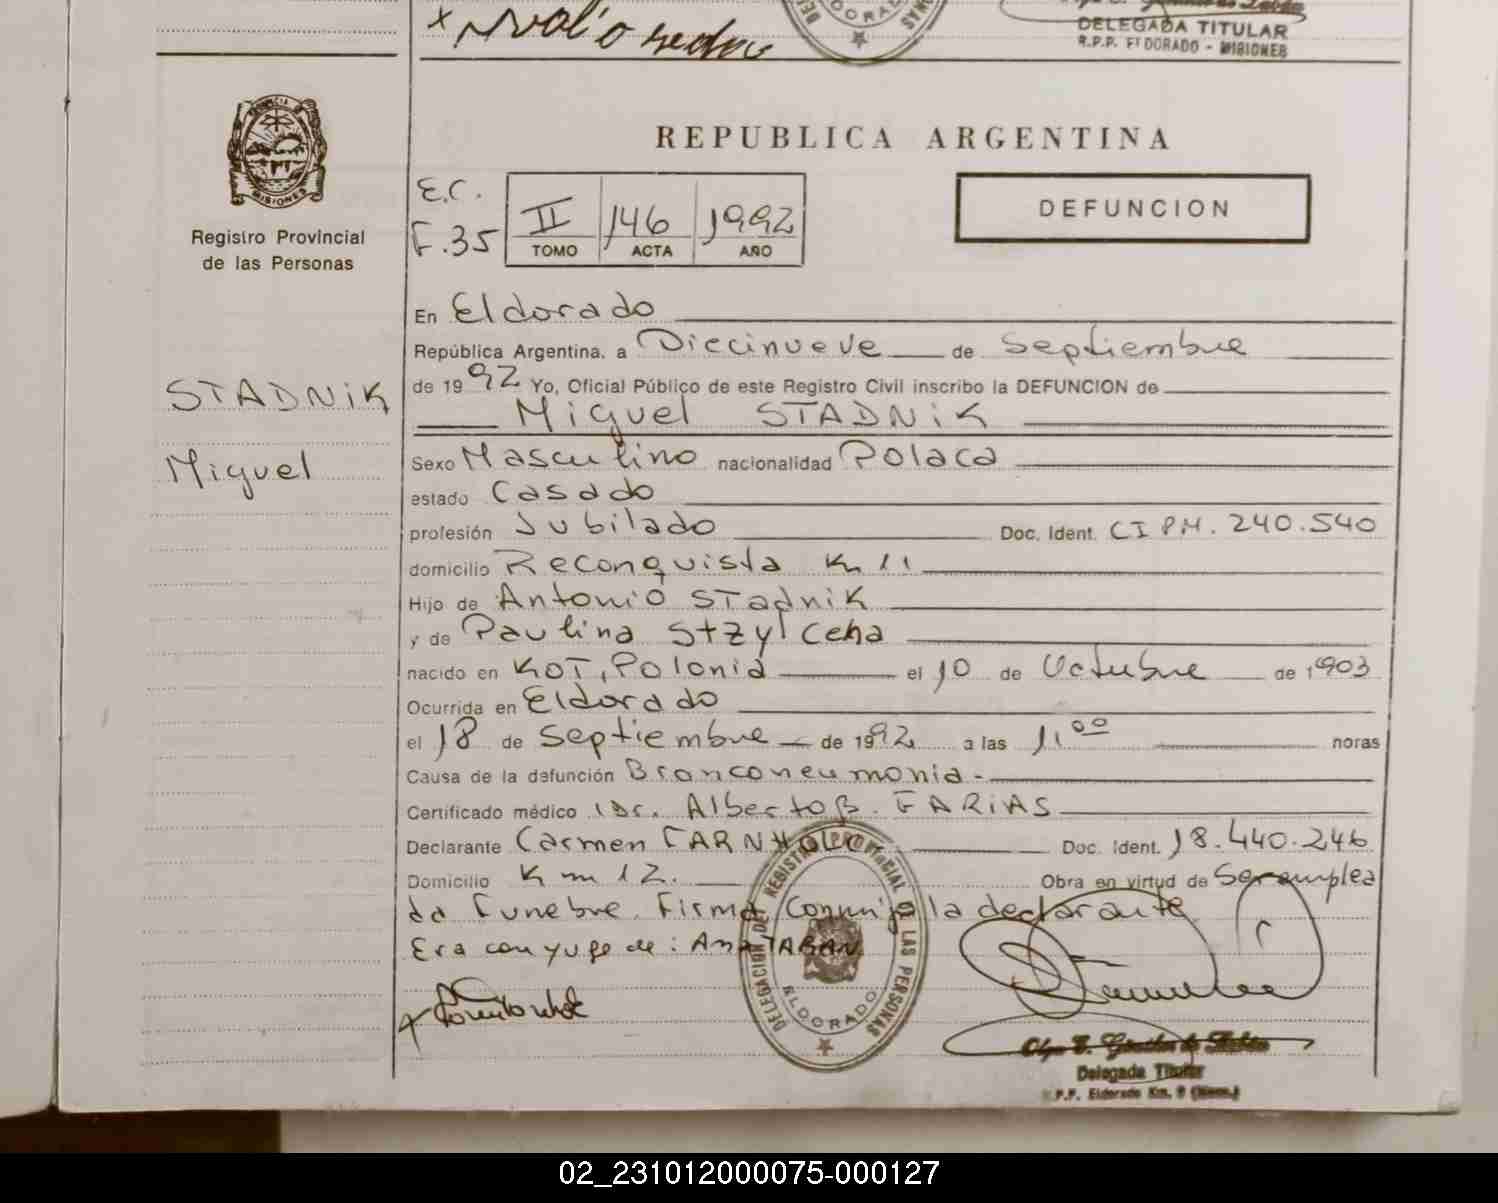 x
DORADO
DELEGADA TITULAR
R.P.P. ELDORADO - MISIONES
MISIONES
Registro Provincial
de las Personas
REPUBLICA ARGENTINA
E.C.
F.35
II 146 1992
TOMO ACTA AÑO
DEFUNCION
En Eldorado
República Argentina, a Diecinueve de Septiembre
de 1992 Yo, Oficial Público de este Registro Civil inscribo la DEFUNCION de
Miguel STADNiK
STADNiK
Miguel
Sexo Masculino nacionalidad Polaca
estado Casado
profesión Jubilado Doc. Ident. CI PM. 240.540
domicilio Reconquista Km 11
Hijo de Antonio STadniK
y de Paulina Stzyl Ceha
nacido en KOT, Polonia el 10 de Octubre de 1903
Ocurrida en Eldorado
el 18 de Septiembre de 1992 a las 11.00 horas
Causa de la defunción Bronconeumonia.-
Certificado médico Dr. Alberto B. FARiAS
Declarante Carmen FARNHOLC Doc. Ident. 18.440.246
Domicilio Km 12. Obra en virtud de Ser emplea
da Funebre. Firma Conmigo la declarante
Era conyuge de: Ana TABAN
x
DELEGACION DEL REGISTRO PROVINCIAL DE LAS PERSONAS
ELDORADO
Delegada Titular
R.P.P. Eldorado Km. 9 (Mnes.)
02_231012000075-000127